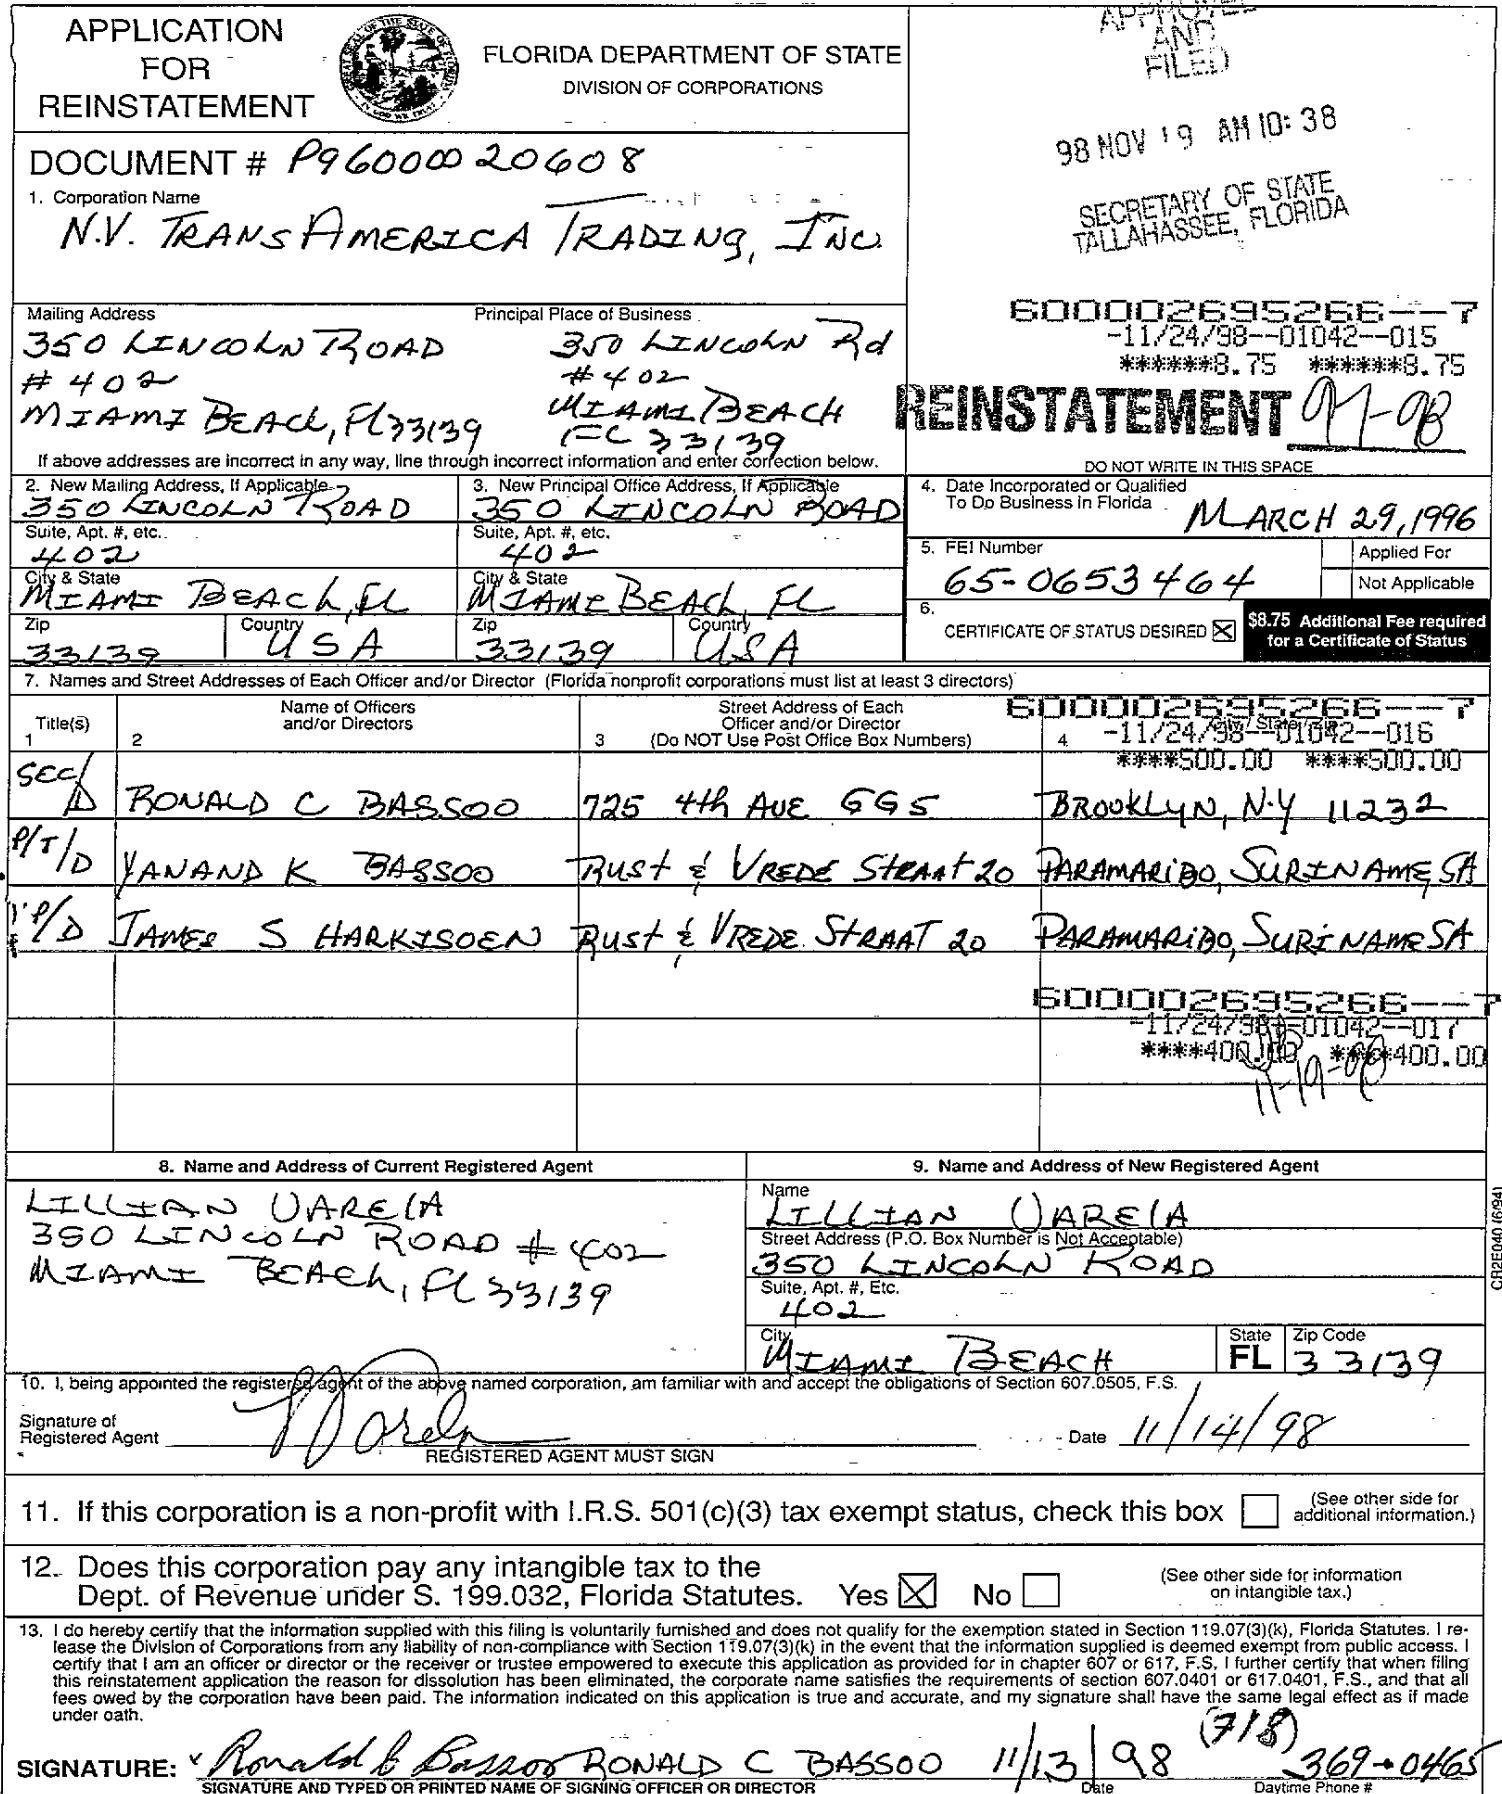 APPLICATION
FOR
REINSTATEMENT
FLORIDA DEPARTMENT OF STATE
DIVISION OF CORPORATIONS
APPROVED
AND
FILED
98 NOV 19 AM 10:38
SECRETARY OF STATE
TALLAHASSEE, FLORIDA
DOCUMENT # P96000020608
1. Corporation Name
N.V. TRANSAMERICA TRADING, INC
Mailing Address
350 LINCOLN ROAD
# 402
MIAMI BEACH, Fl 33139
Principal Place of Business
350 LINCOLN Rd
# 402
MIAMI BEACH
FL 33139
600002695266--7
-11/24/98--01042--015
******8.75 ******8.75
REINSTATEMENT 97-98
If above addresses are incorrect in any way, line through incorrect information and enter correction below.
DO NOT WRITE IN THIS SPACE
2. New Mailing Address, If Applicable
350 LINCOLN ROAD
Suite, Apt. #, etc.
402
City & State
MIAMI BEACH, FL
Zip
33139
Country
USA
3. New Principal Office Address, If Applicable
350 LINCOLN ROAD
Suite, Apt. #, etc.
402
City & State
MIAMI BEACH, FL
Zip
33139
Country
USA
4. Date Incorporated or Qualified
To Do Business in Florida MARCH 29, 1996
5. FEI Number
65-0653464
Applied For
Not Applicable
6.
CERTIFICATE OF STATUS DESIRED
$8.75 Additional Fee required
for a Certificate of Status
7. Names and Street Addresses of Each Officer and/or Director (Florida nonprofit corporations must list at least 3 directors)
Title(s)
1
Name of Officers
and/or Directors
2
Street Address of Each
Officer and/or Director
3 (Do NOT Use Post Office Box Numbers)
City / State / Zip
4
600002695266--7
-11/24/98--01042--016
****500.00 ****500.00
SEC/D RONALD C BASSOO 725 4th AVE GG5 BROOKLYN, N.Y 11232
P/T/D YANAND K BASSOO RUST & VREDE STRAAT 20 PARAMARIBO, SURINAME, SA
V.P/D JAMES S HARKISOEN RUST & VREDE STRAAT 20 PARAMARIBO, SURINAME SA
600002695266--7
-11/24/98--01042--017
****400.00 ****400.00
11-19-98
8. Name and Address of Current Registered Agent
LILLIAN VARElA
350 LINCOLN ROAD # 402
MIAMI BEACh, FL 33139
9. Name and Address of New Registered Agent
Name
LILLIAN VARElA
Street Address (P.O. Box Number is Not Acceptable)
350 LINCOLN ROAD
Suite, Apt. #, Etc.
402
City
MIAMI BEACH
State
FL
Zip Code
33139
CR2E040 (6/94)
10. I, being appointed the registered agent of the above named corporation, am familiar with and accept the obligations of Section 607.0505, F.S.
Signature of
Registered Agent
Varela
Date 11/14/98
REGISTERED AGENT MUST SIGN
11. If this corporation is a non-profit with I.R.S. 501(c)(3) tax exempt status, check this box
(See other side for
additional information.)
12. Does this corporation pay any intangible tax to the
Dept. of Revenue under S. 199.032, Florida Statutes. Yes No
(See other side for information
on intangible tax.)
13. I do hereby certify that the information supplied with this filing is voluntarily furnished and does not qualify for the exemption stated in Section 119.07(3)(k), Florida Statutes. I re-
lease the Division of Corporations from any liability of non-compliance with Section 119.07(3)(k) in the event that the information supplied is deemed exempt from public access. I
certify that I am an officer or director or the receiver or trustee empowered to execute this application as provided for in chapter 607 or 617, F.S. I further certify that when filing
this reinstatement application the reason for dissolution has been eliminated, the corporate name satisfies the requirements of section 607.0401 or 617.0401, F.S., and that all
fees owed by the corporation have been paid. The information indicated on this application is true and accurate, and my signature shall have the same legal effect as if made
under oath.
SIGNATURE: x Ronald C Bassoo RONALD C BASSOO 11/13/98 (718) 369-0465
SIGNATURE AND TYPED OR PRINTED NAME OF SIGNING OFFICER OR DIRECTOR
Date
Daytime Phone #